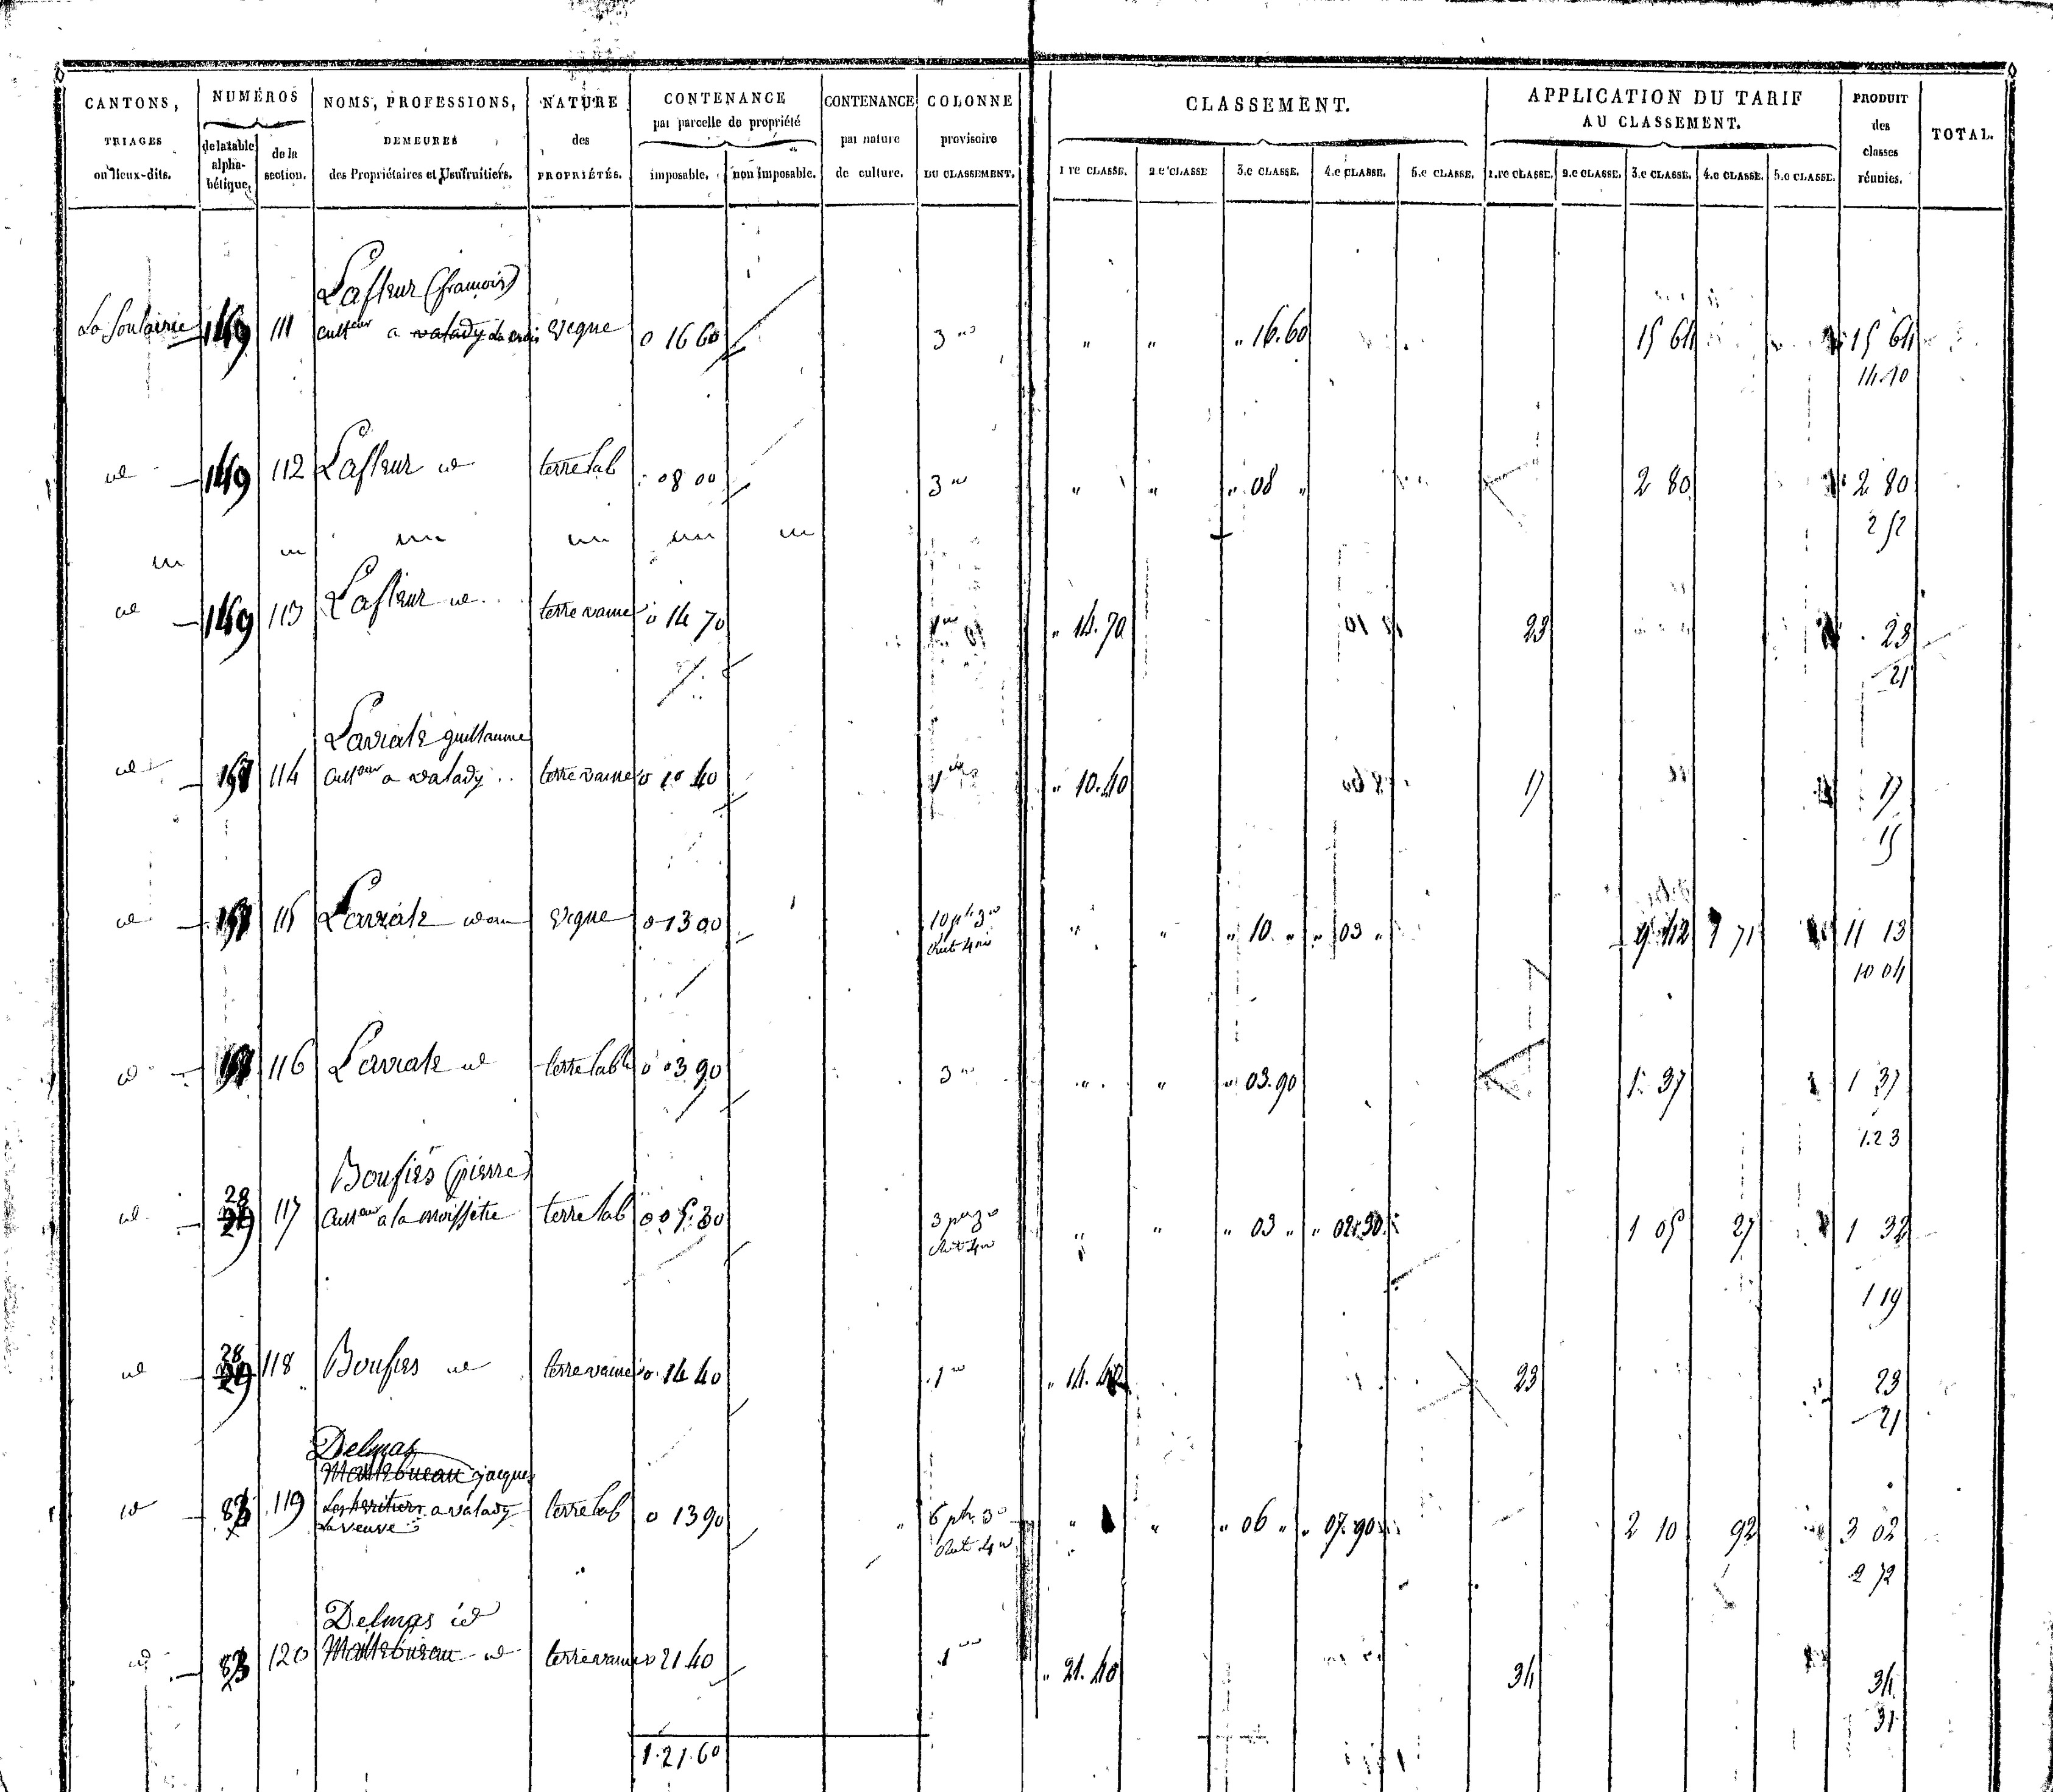 CANTONS, TRIAGES ou lieux-dits. NUMÉROS de la table alphabétique. de la section. NOMS, PROFESSIONS, DEMEURES des Propriétaires et Usufruitiers. NATURE des PROPRIÉTÉS. CONTENANCE par parcelle de propriété imposable. non imposable. CONTENANCE par nature de culture. COLONNE provisoire DU CLASSEMENT. CLASSEMENT. 1.re CLASSE. 2.e CLASSE 3.e CLASSE. 4.e CLASSE. 5.e CLASSE. APPLICATION DU TARIF AU CLASSEMENT. 1.re CLASSE. 2.e CLASSE. 3.e CLASSE. 4.e CLASSE. 5.e CLASSE. PRODUIT des classes réunies. TOTAL.
Lafleur (francois)
La Soulairie 149 111 cult.eur a valady vigne 0 16 60 3 " " " 16.60 15 64 15 64
14.10
id 149 112 Lafleur id terre lab 08 00 3 " " " 08 " 2 80 2 80
2 52
id 149 113 Lafleur id terre vaine 0 14 70 1 " 14.70 23 23
21
Laviale guillaume
id 114 cult.eur a valady terre vaine 0 10 40 1 " 10.40 17 17
15
id 115 Laviale vigne 0 13 00 10 p.r 3 " " " 10 " " 03 " 9 42 1 71 11 13
10 04
id 116 Laviale id terre lab.le 0 03 90 3 " " " 03.90 1 37 1 37
1.23
Boufies (pierre)
id 28 29 117 cult.eur a la moissetie terre lab 0 05 30 3 p.r 3 " " " 03 " " 02.30 1 05 27 1 32
1 19
id 28 29 118 Boufies id terre vaine 0 14 40 1 " 14.40 23 23
21
Delmas
jacques
id 83 119 Les heritiers a valady terre lab 0 13 90 6 p.r 3 " " " 06 " " 07.90 2 10 92 3 02
La veuve
2 72
Delmas id
id 83 120 id terre vaine 0 21 40 1 " 21.40 34 34
31
1.21.60